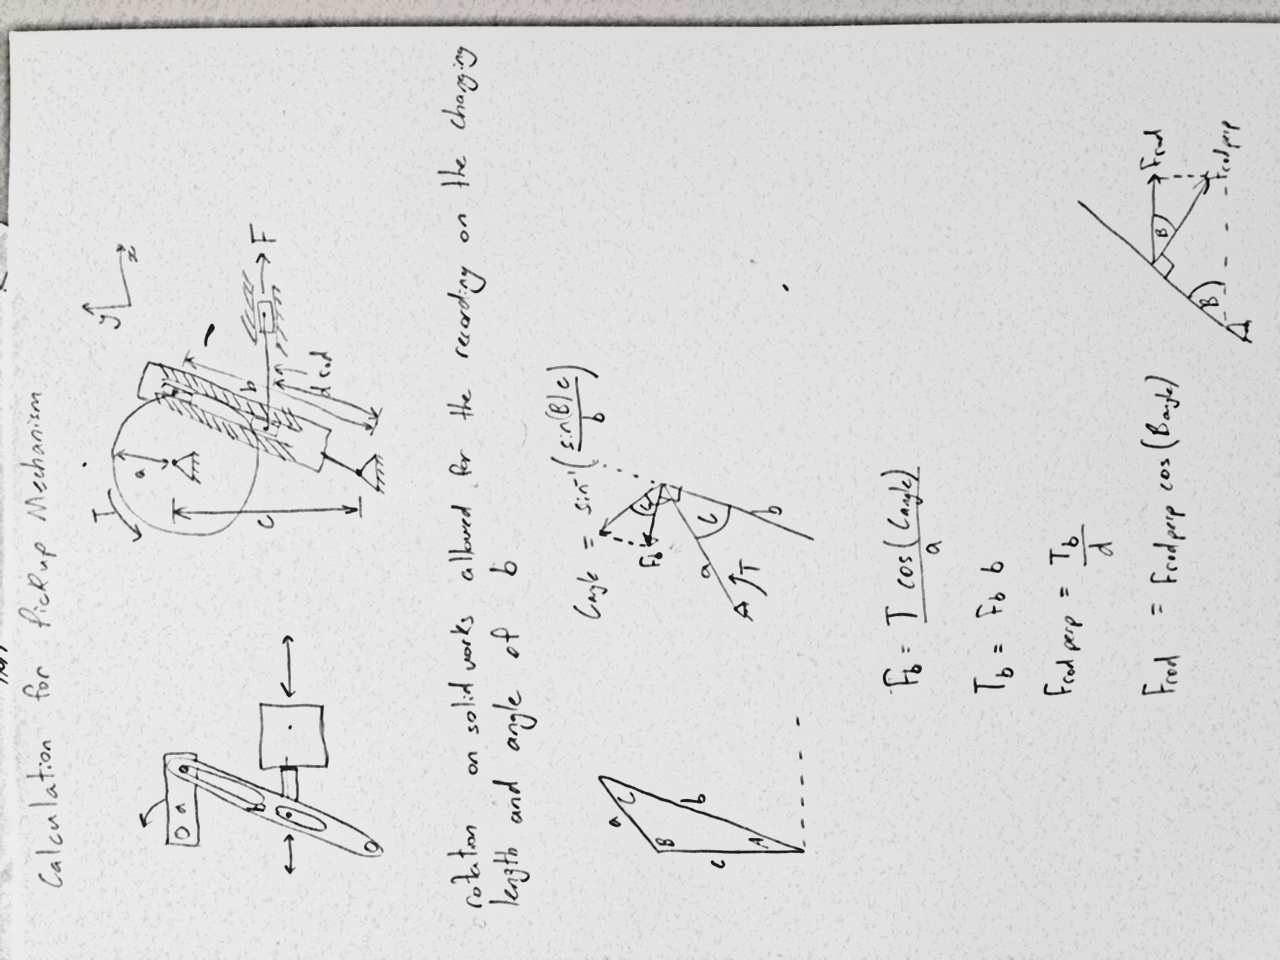 Calculation for Pickup Mechanism
a
b
T
a
c
b
d rod
F
y
x
rotation on solid works allowed for the recording on the changing
length and angle of b
a
B
C
c
b
A
Cangle = sin⁻¹(sin(B)c/b)
Fb
C
a
C
b
T
Fb = T cos(Cangle)/a
Tb = Fb b
Frod perp = Tb/d
Frod = Frod perp cos(Bangle)
Frod
B
B
Frod perp